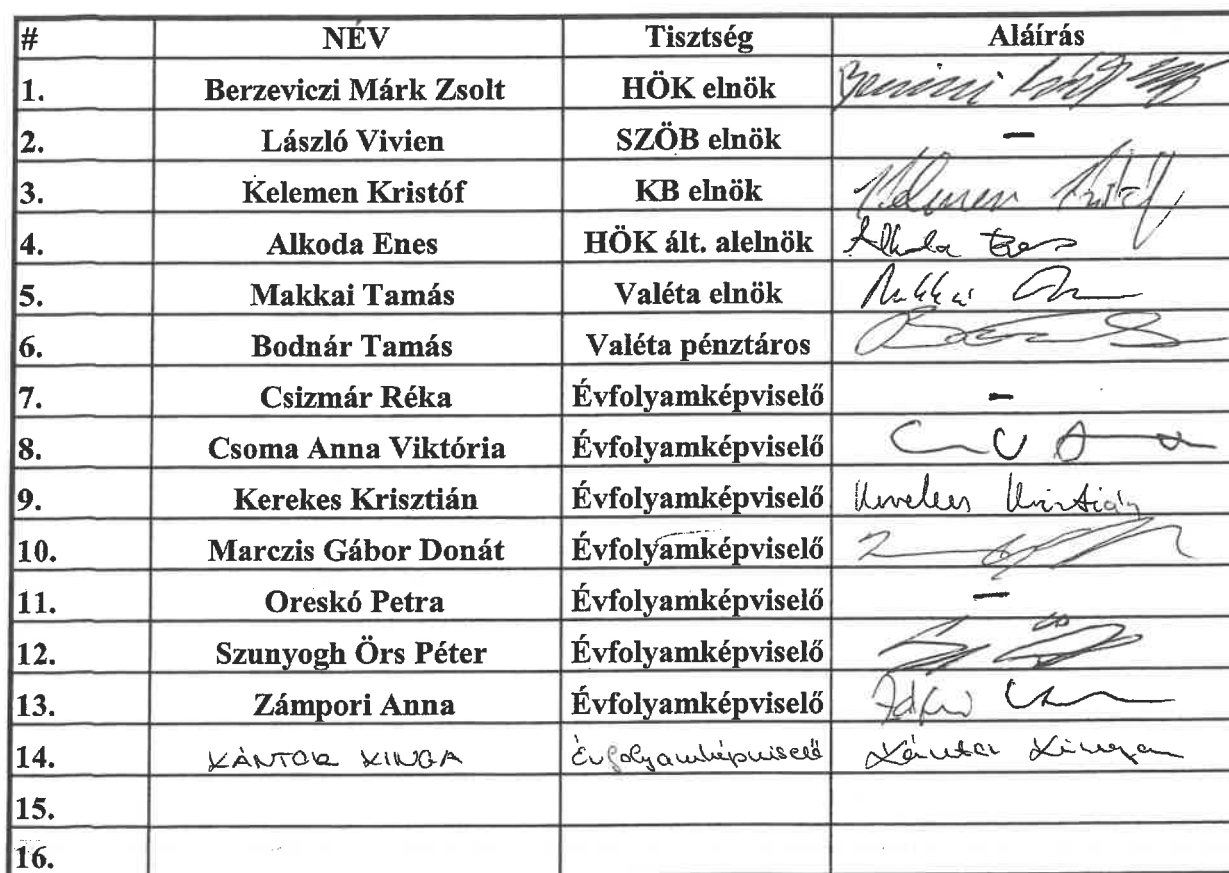 # NÉV Tisztség Aláírás
1. Berzeviczi Márk Zsolt HÖK elnök
2. László Vivien SZÖB elnök –
3. Kelemen Kristóf KB elnök Kelemen Kristóf
4. Alkoda Enes HÖK ált. alelnök Alkoda Enes
5. Makkai Tamás Valéta elnök Makkai
6. Bodnár Tamás Valéta pénztáros
7. Csizmár Réka Évfolyamképviselő –
8. Csoma Anna Viktória Évfolyamképviselő
9. Kerekes Krisztián Évfolyamképviselő Kerekes Krisztián
10. Marczis Gábor Donát Évfolyamképviselő
11. Oreskó Petra Évfolyamképviselő –
12. Szunyogh Örs Péter Évfolyamképviselő
13. Zámpori Anna Évfolyamképviselő
14. KÁNTOR KINGA Évfolyamképviselő Kántor Kinga
15.
16.